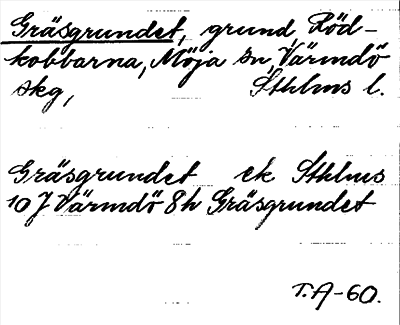 Gräsgrundet, grund, Röd-
kobbarna, Möja sn, Värmdö
skg, Sthlms l.
Gräsgrundet ek Sthlms
10 J Värmdö 8h Gräsgrundet
T.A-60.